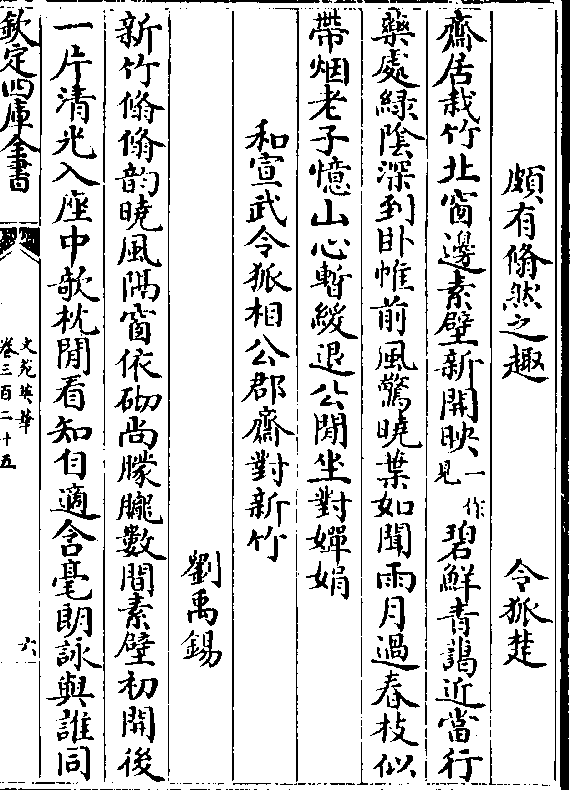 頗有翛然之趣
令狐楚
齋居栽竹北窗邊素壁新開映一作見碧鮮青靄近當行
藥處綠陰深到卧帷前風驚曉葉如聞雨月過春枝似
帶烟老子憶山心暫緩退公閒坐對嬋娟
和宣武令狐相公郡齋對新竹
劉禹錫
新竹翛翛韵曉風隔窗依砌尚朦朧數間素壁初開後
一片清光入座中欹枕閒看知自適含毫朗詠與誰同
欽定四庫全書
文苑英華
卷三百二十五
六